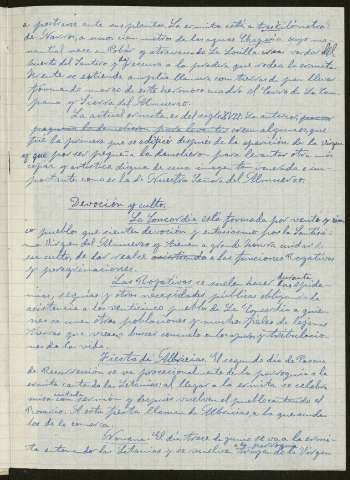 a postrarse ante sus plantas. La ermita está a tres kilómetros
de Navas, a unos cien metros de las aguas
nantial nace en y atravesando La Losilla van a
huerto del Santero y de frescura a la pradera que rodea la ermita.
Al este se extiende amplia llanura con tierras de pan llevar
formando marco de este hermoso cuadro el Cerro de la Cam
pana y Sierra del Almuerzo.
La actual ermita es del siglo XVII. La anterior
creen algunos que
fué la primera que se edificó después de la aparición de la Virgen
y que por ser pequeña la demolieron para levantar otra más
capaz y artística digna de una imagen tan venerada e im
portante como es la de Nuestra Señora del Almuerzo.
Devoción y culto.
La Concordia está formada por veinte y cin
co pueblos que sienten devoción y entusiasmo por la Santísi
ma Virgen del Almuerzo y tienen a grande honra cuidar de
su culto, de dar realce asistiendo a las funciones Rogativas
y peregrinaciones.
Las Rogativas se suelen hacer durante epide
mias, sequías y otras necesidades públicas obligando la
asistencia a los veinticinco pueblos de La Concordia a quie
nes se unen otras poblaciones y muchos fieles de lejanas
tierras que vienen buscar consuelo en los apuros y tribulacio
nes de la vida.
Fiesta de Albricias. El segundo día de Pascua
de Resurrección se va procesionalmente de la parroquia a la
ermita cantando las Letanías; al llegar a la ermita se celebra
misa cantada con sermón y después vuelven al pueblo cantando el
Rosario. A esta fiesta llaman de Albricias a la que asisten
los de la comarca.
Novena. El día trece de junio se va a la ermi
ta entonando las Letanías y se vuelve a la parroquia la imagen de la Virgen